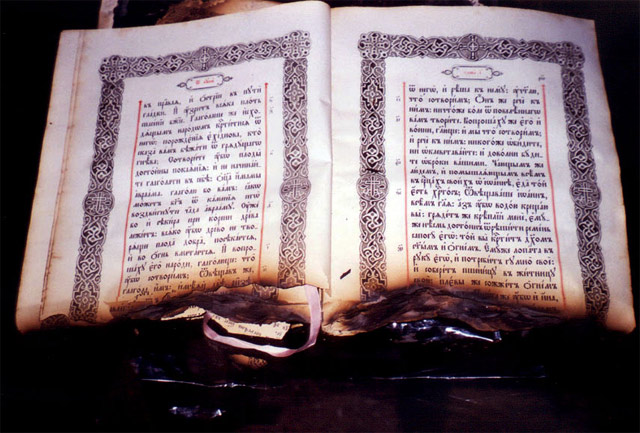 въ права̑ѧ, и҆ ѻ҆́стрїи въ пꙋти̑
гла́дки. И҆ ᲂу҆́зритъ всѧ́ка пло́ть
бж҃їе. Глаго́лаше же и҆схо-
дѧ́щымъ наро́дѡмъ крⷭ҇ти́тисѧ ѿ
негѡ̀: порождє́нїѧ є҆хі̑днова, кто̀
сказа̀ ва́мъ бѣжа́ти ѿ грѧдꙋ́щагѡ
гнѣ́ва; Сотвори́те ᲂу҆̀бо плоды̀
достѡ́йны покаѧ́нїѧ: и҆ не начина́й-
те глаго́лати въ себѣ̀: ѻ҆ц҃а̀ и҆́мамы
а҆враа́ма. глаго́лю бо ва́мъ: ꙗ҆́кѡ
мо́жетъ бг҃ъ ѿ ка́менїѧ сегѡ̀
воздви́гнꙋти ча̑да а҆враа́мꙋ. Оу҆жѐ
бо и҆ сѣки́ра при ко́рени дре́ва
лежи́тъ: всѧ́ко ᲂу҆̀бо дре́во не тво-
рѧ́щее плода̀ добра̀, посѣка́етсѧ,
и҆ во ѻ҆́гнь вмета́етсѧ. И҆ вопро-
ша́хꙋ є҆го̀ наро́ди, глаго́люще: что̀
ᲂу҆̀бо сотвори́мъ; Ѿвѣща́въ же,
глаго́ла и҆̀мъ: и҆мѣ́ѧй
ѿ негѡ̀, и҆ рѣ́ша къ немꙋ̀: ᲂу҆чт҃лю,
что̀ сотвори́мъ; Ѻ҆́нъ же речѐ къ
ни̑мъ: ничто́же бо́лѣ ѿ повелѣ́ннагѡ
ва́мъ твори́те. Вопроша́хꙋ же є҆го̀ и҆
во́ини, глаго́люще: и҆ мы̀ что̀ сотвори́мъ;
и҆ речѐ къ ни̑мъ: никого́же ѡ҆би́дите,
ни ѡ҆клевета́вайте: и҆ дово́льни бꙋ́ди-
те ѡ҆брѡ́ки ва́шими. Ча́ющымъ же
лю́демъ, и҆ помышлѧ́ющымъ всѣ̑мъ
въ срⷣца́хъ свои́хъ ѡ҆ і҆ѡа́ннѣ, є҆да̀ то́й
є҆́сть хрⷭ҇то́съ: Ѿвѣщава́ше і҆ѡа́ннъ
всѣ̑мъ глаго́лѧ: а҆́зъ ᲂу҆́бѡ водо́ю креща́ю
вы̀: грѧде́тъ же крѣ́плїй менє̀, є҆мꙋ́-
же нѣ́смь досто́инъ ѿрѣши́ти реме́нь
сапогꙋ̀ є҆гѡ̀: то́й вы̀ крⷭ҇ти́тъ дх҃омъ
ст҃ы́мъ и҆ ѻ҆гне́мъ. Є҆мꙋ́же лопа́та въ
рꙋкꙋ̀ є҆гѡ̀, и҆ потреби́тъ гꙋмно̀ своѐ:
и҆ собере́тъ пшени́цꙋ въ жи́тницꙋ
плє́вы же сожже́тъ ѻ҆гне́мъ
же ᲂу҆̀бо и҆ и҆́на,